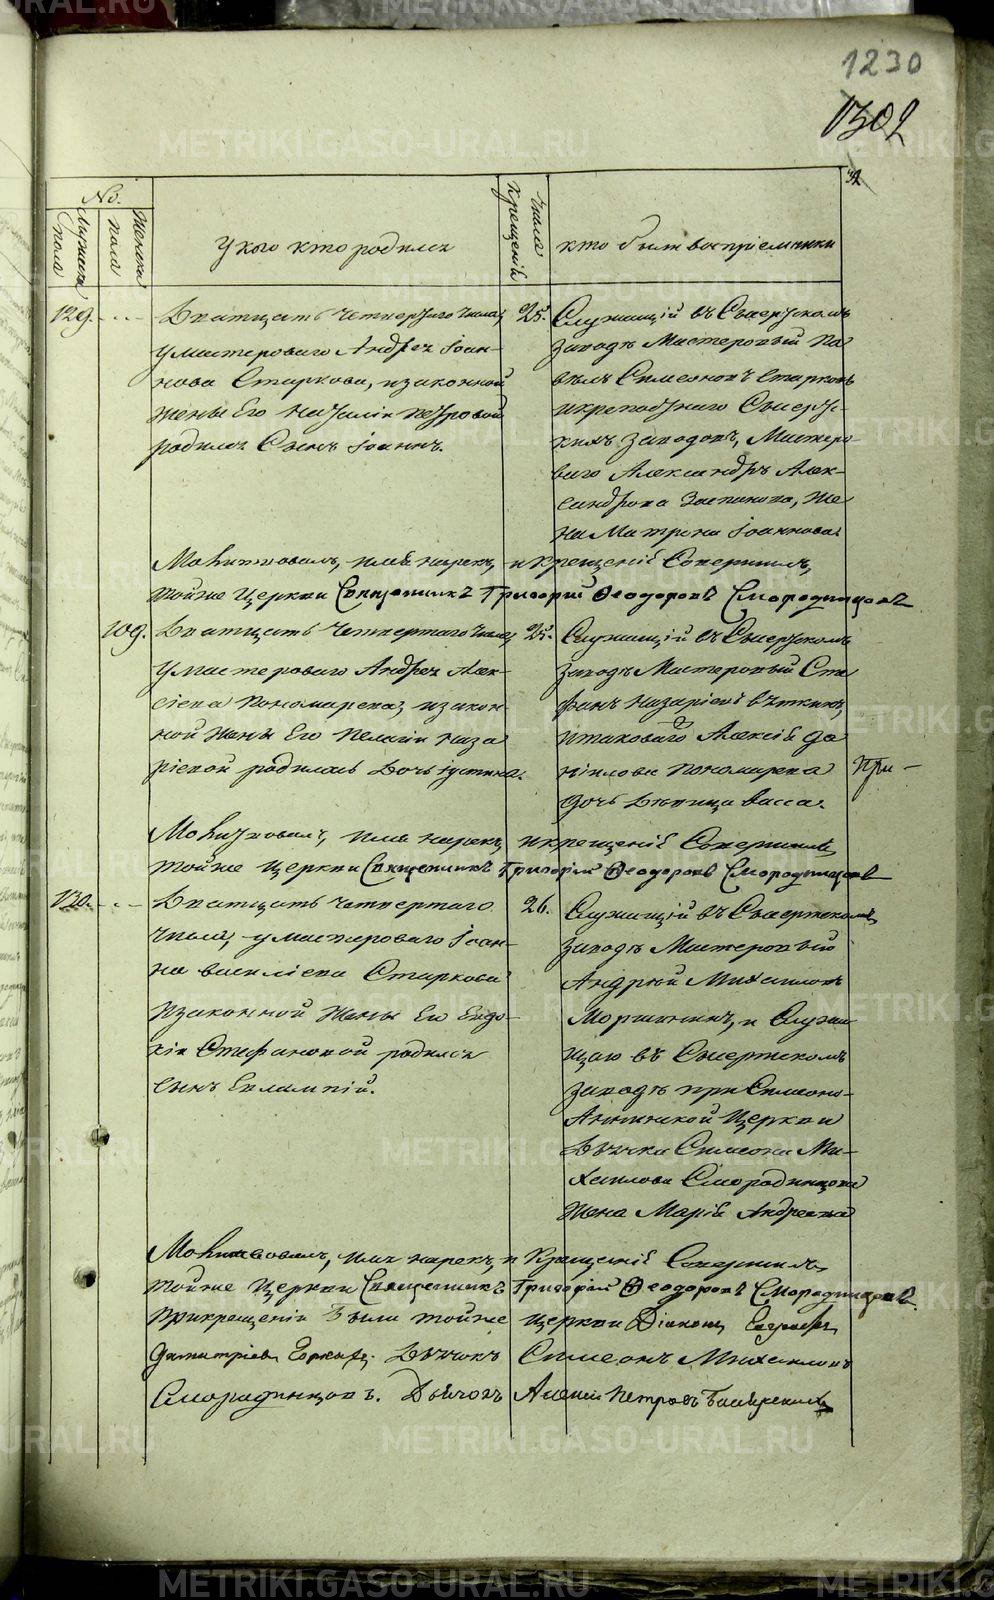 1230
1302
№.
Мужеска пола
Женска пола
У кого кто родился
Числа крещенiя
кто были воспрiемники
129.
Дватцать четвертаго числа,
у мастероваго Андрея Iоан-
нова Старкова, изаконной
жены Его Наталiи Петровой
родился Сынъ Iоаннъ.
25.
Служащiй въ Сысертскомъ
заводѣ Мастеровый Па
велъ Симеоновъ Старковъ
Сысертс-
кихъ заводовъ, Мастеро-
ваго Александръ Алек-
сандрова же
на Матрона Iоаннова.
Молитвовалъ, имя нарекъ, и крещенiе Совершилъ,
тойже Церкви Священникъ Григорiй Ѳеодоровъ Смородинцовъ
109.
Дватцать четвертаго числа,
у мастероваго Андрея Алек-
сiева Пономарева, изакон-
ной жены Его Пелагiи Наза
рiевой родилась Дочь Iустина.
25.
Служащiй въ Сысертскомъ
заводѣ Мастеровый Сте
фанъ Назарiевъ
итаковаго Алексiя Да
нiилова Пономарева
дочь Дѣвица Васса.
При-
Молитвовалъ, имя нарекъ, икрещенiе Совершилъ,
тойже Церкви Священникъ Григорiй Ѳеодоровъ Смородинцовъ
130.
Дватцать четвертаго
числа, у мастероваго Iоан-
на Василiева Старкова
изаконной жены Его Евдо-
кiи Стефановой родился
сынъ Евлампiй.
26.
Служащiй въ Сысертскомъ
заводѣ Мастеровый
Андрей Михаиловъ
и Служа
щаго въ Сысертскомъ
заводѣ при Симеоно-
Аннинской Церкви
Дьячка Симеона Ми-
хаилова Смородинцова
жена Марiя Андреева
Молитвовалъ, имя нарекъ, и Крещенiе Совершилъ,
тойже Церкви Священникъ Григорiй Ѳеодоровъ Смородинцовъ.
Прикрещенiи были тойже церкви Дiаконъ
Димитрiевъ Дьячокъ Симеонъ Михаиловъ
Смородинцовъ. Дьячокъ Алексiй Петровъ
METRIKI.GASO-URAL.RU